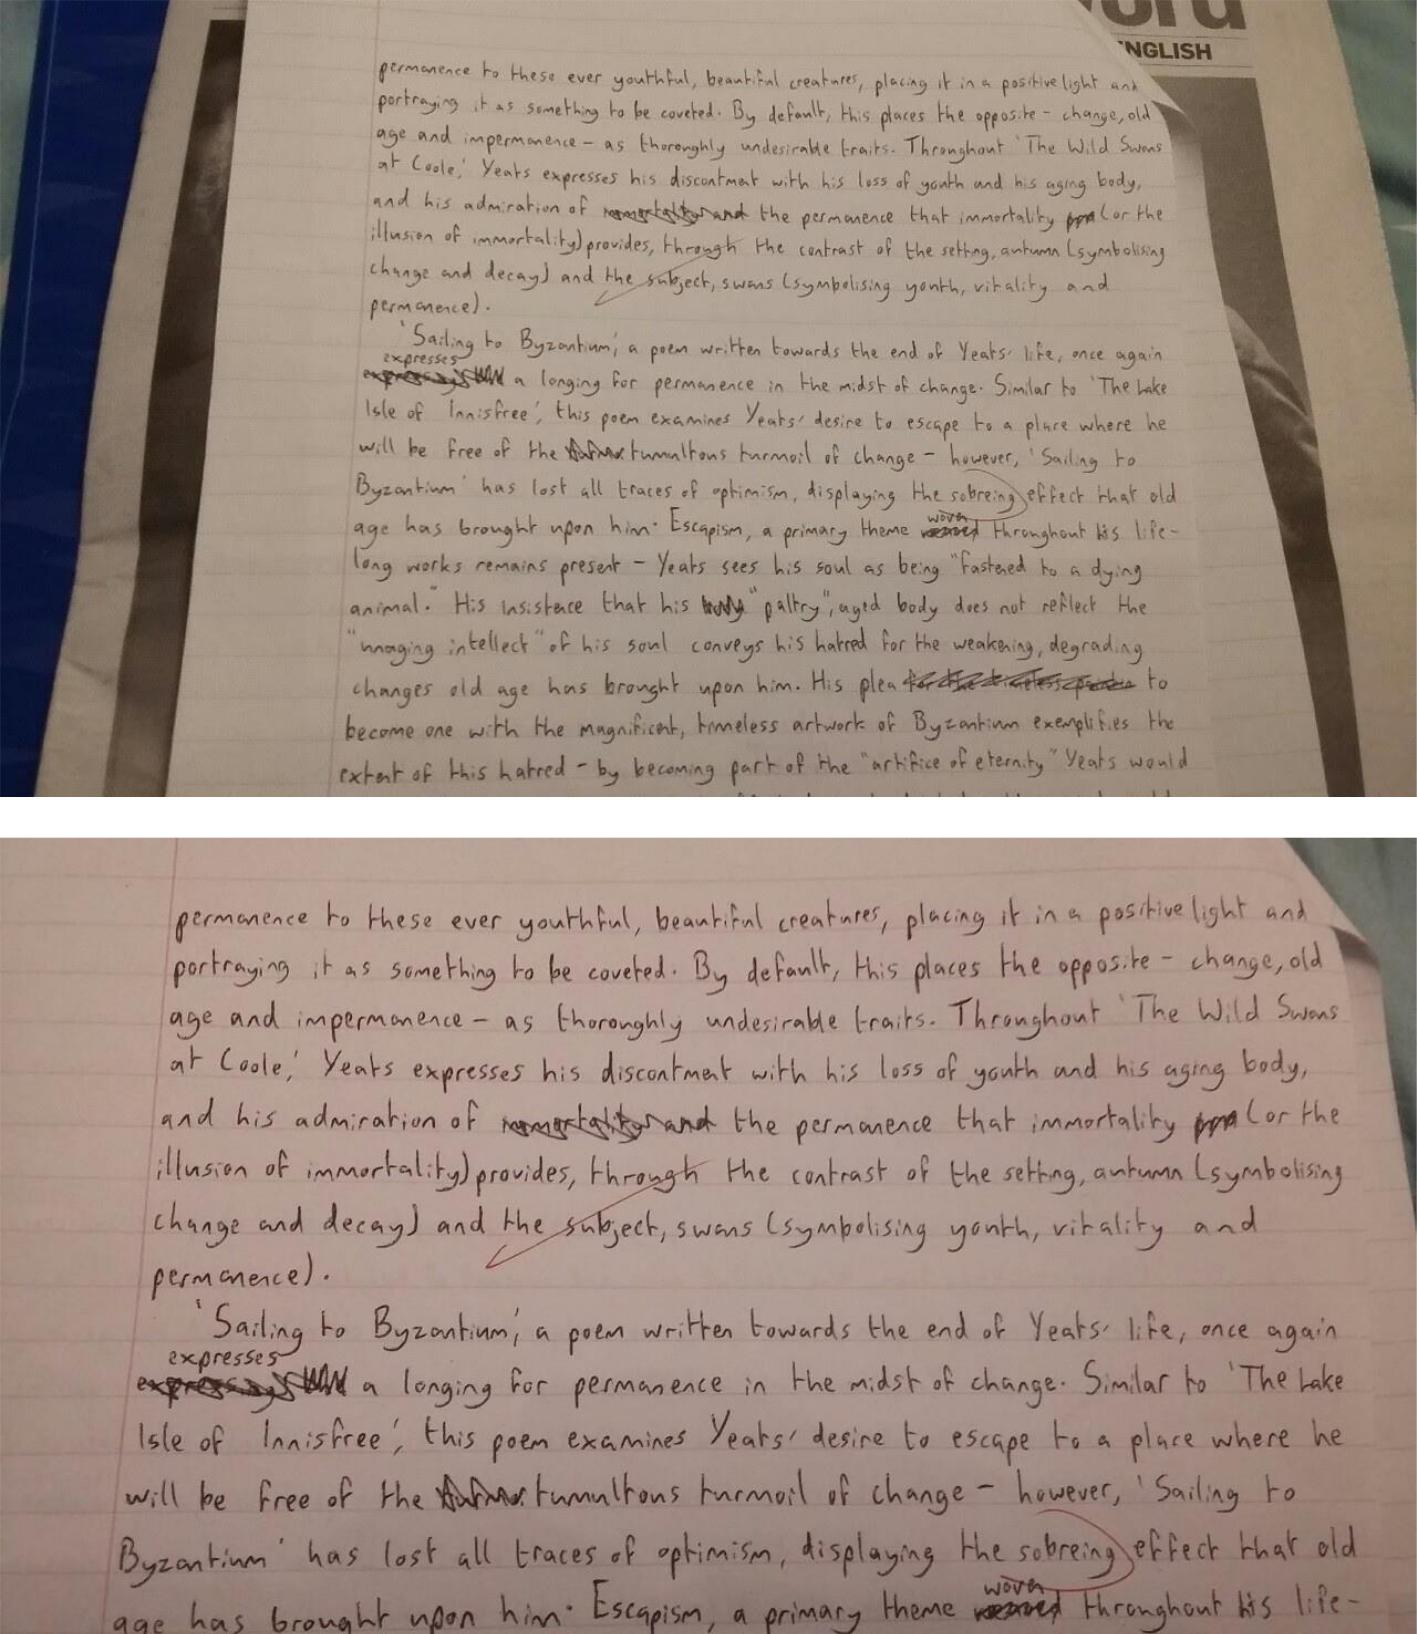 ord
ENGLISH
permanence to these ever youthful, beautiful creatures, placing it in a positive light and
portraying it as something to be coveted. By default, this places the opposite - change, old
age and impermanence - as thoroughly undesirable traits. Throughout 'The Wild Swans
at Coole,' Yeats expresses his discontment with his loss of youth and his aging body,
and his admiration of immortality and the permanence that immortality (or the
illusion of immortality) provides, through the contrast of the setting, autumn (symbolising
change and decay) and the subject, swans (symbolising youth, vitality and
permanence).
'Sailing to Byzantium', a poem written towards the end of Yeats' life, once again
expresses
a longing for permanence in the midst of change. Similar to 'The Lake
Isle of Innisfree', this poem examines Yeats' desire to escape to a place where he
will be free of the tumultous turmoil of change - however, 'Sailing to
Byzantium' has lost all traces of optimism, displaying the sobreing effect that old
woven
age has brought upon him. Escapism, a primary theme throughout his life-
long works remains present - Yeats sees his soul as being "fastened to a dying
animal." His insistence that his "paltry", aged body does not reflect the
"unaging intellect" of his soul conveys his hatred for the weakening, degrading
changes old age has brought upon him. His plea for the timeless to
become one with the magnificent, timeless artwork of Byzantium exemplifies the
extent of this hatred - by becoming part of the "artifice of eternity" Yeats would
permanence to these ever youthful, beautiful creatures, placing it in a positive light and
portraying it as something to be coveted. By default, this places the opposite - change, old
age and impermanence - as thoroughly undesirable traits. Throughout 'The Wild Swans
at Coole,' Yeats expresses his discontment with his loss of youth and his aging body,
and his admiration of immortality and the permanence that immortality (or the
illusion of immortality) provides, through the contrast of the setting, autumn (symbolising
change and decay) and the subject, swans (symbolising youth, vitality and
permanence).
'Sailing to Byzantium', a poem written towards the end of Yeats' life, once again
expresses
a longing for permanence in the midst of change. Similar to 'The Lake
Isle of Innisfree', this poem examines Yeats' desire to escape to a place where he
will be free of the tumultous turmoil of change - however, 'Sailing to
Byzantium' has lost all traces of optimism, displaying the sobreing effect that old
woven
age has brought upon him. Escapism, a primary theme throughout his life-